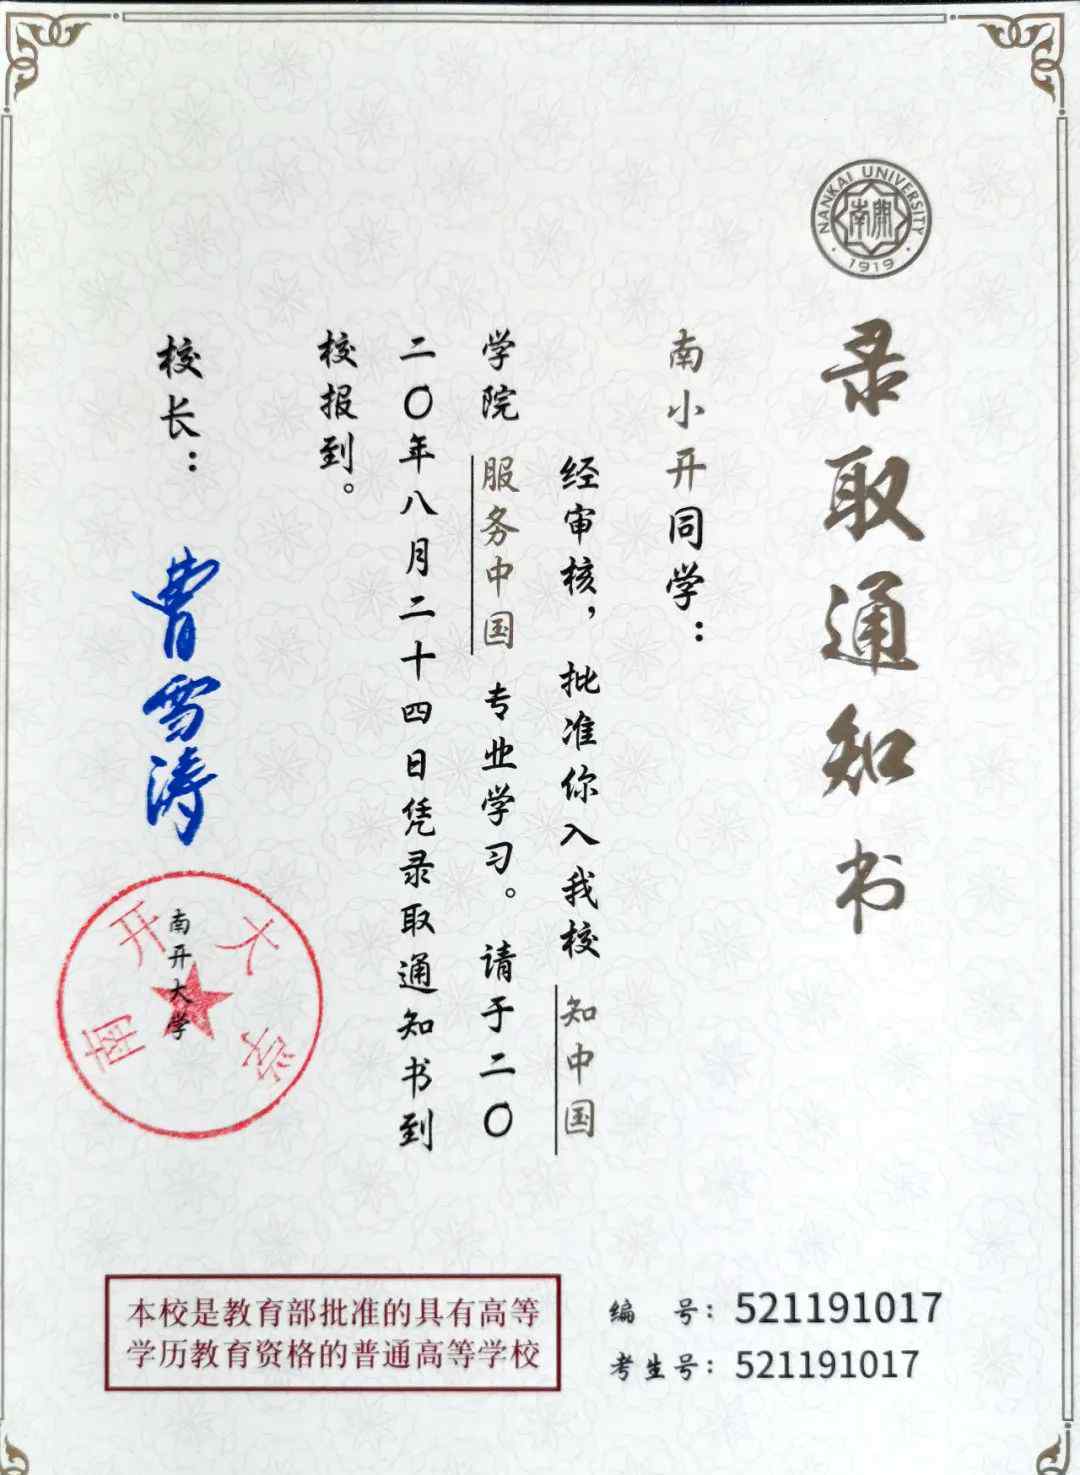 NANKAI UNIVERSITY
南開
1919
录取通知书
南小开同学：
经审核，批准你入我校 知中国
学院 服务中国 专业学习。请于二〇
二〇年八月二十四日凭录取通知书到
校报到。
校长：曹雪涛
南开大学
南开大学
本校是教育部批准的具有高等
学历教育资格的普通高等学校
编 号：521191017
考生号：521191017